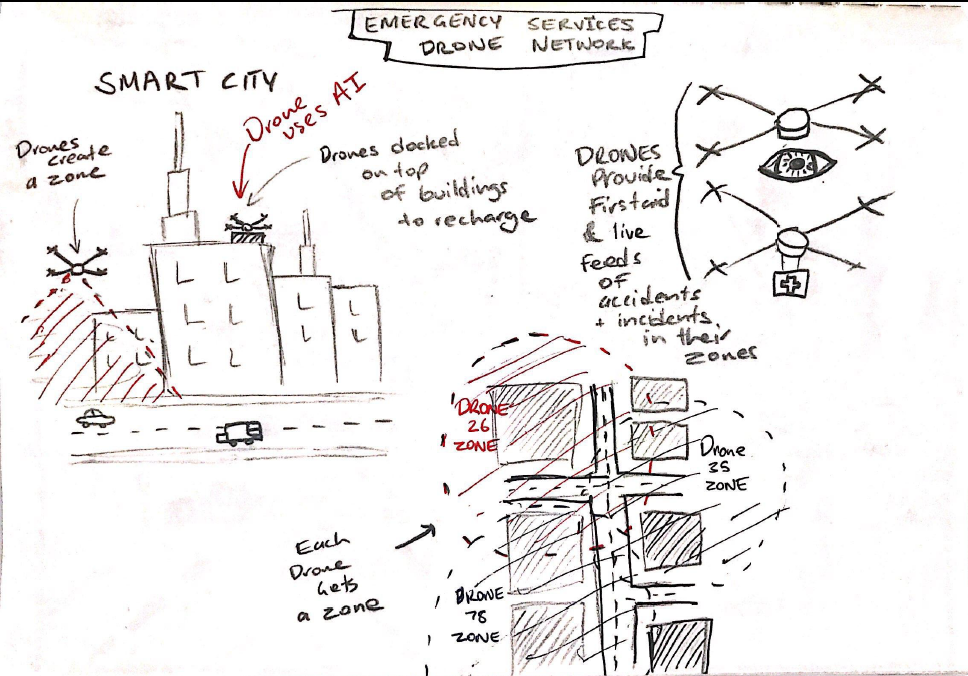 EMERGENCY SERVICES
DRONE NETWORK
SMART CITY
Drone
uses AI
Drones
create
a zone
Drones docked
on top
of buildings
to recharge
DRONES
Provide
First aid
& live
feeds
of
accidents
+ incidents
in their
zones
DRONE
26
ZONE
Drone
35
ZONE
Each
Drone
Gets
a zone
DRONE
78
ZONE